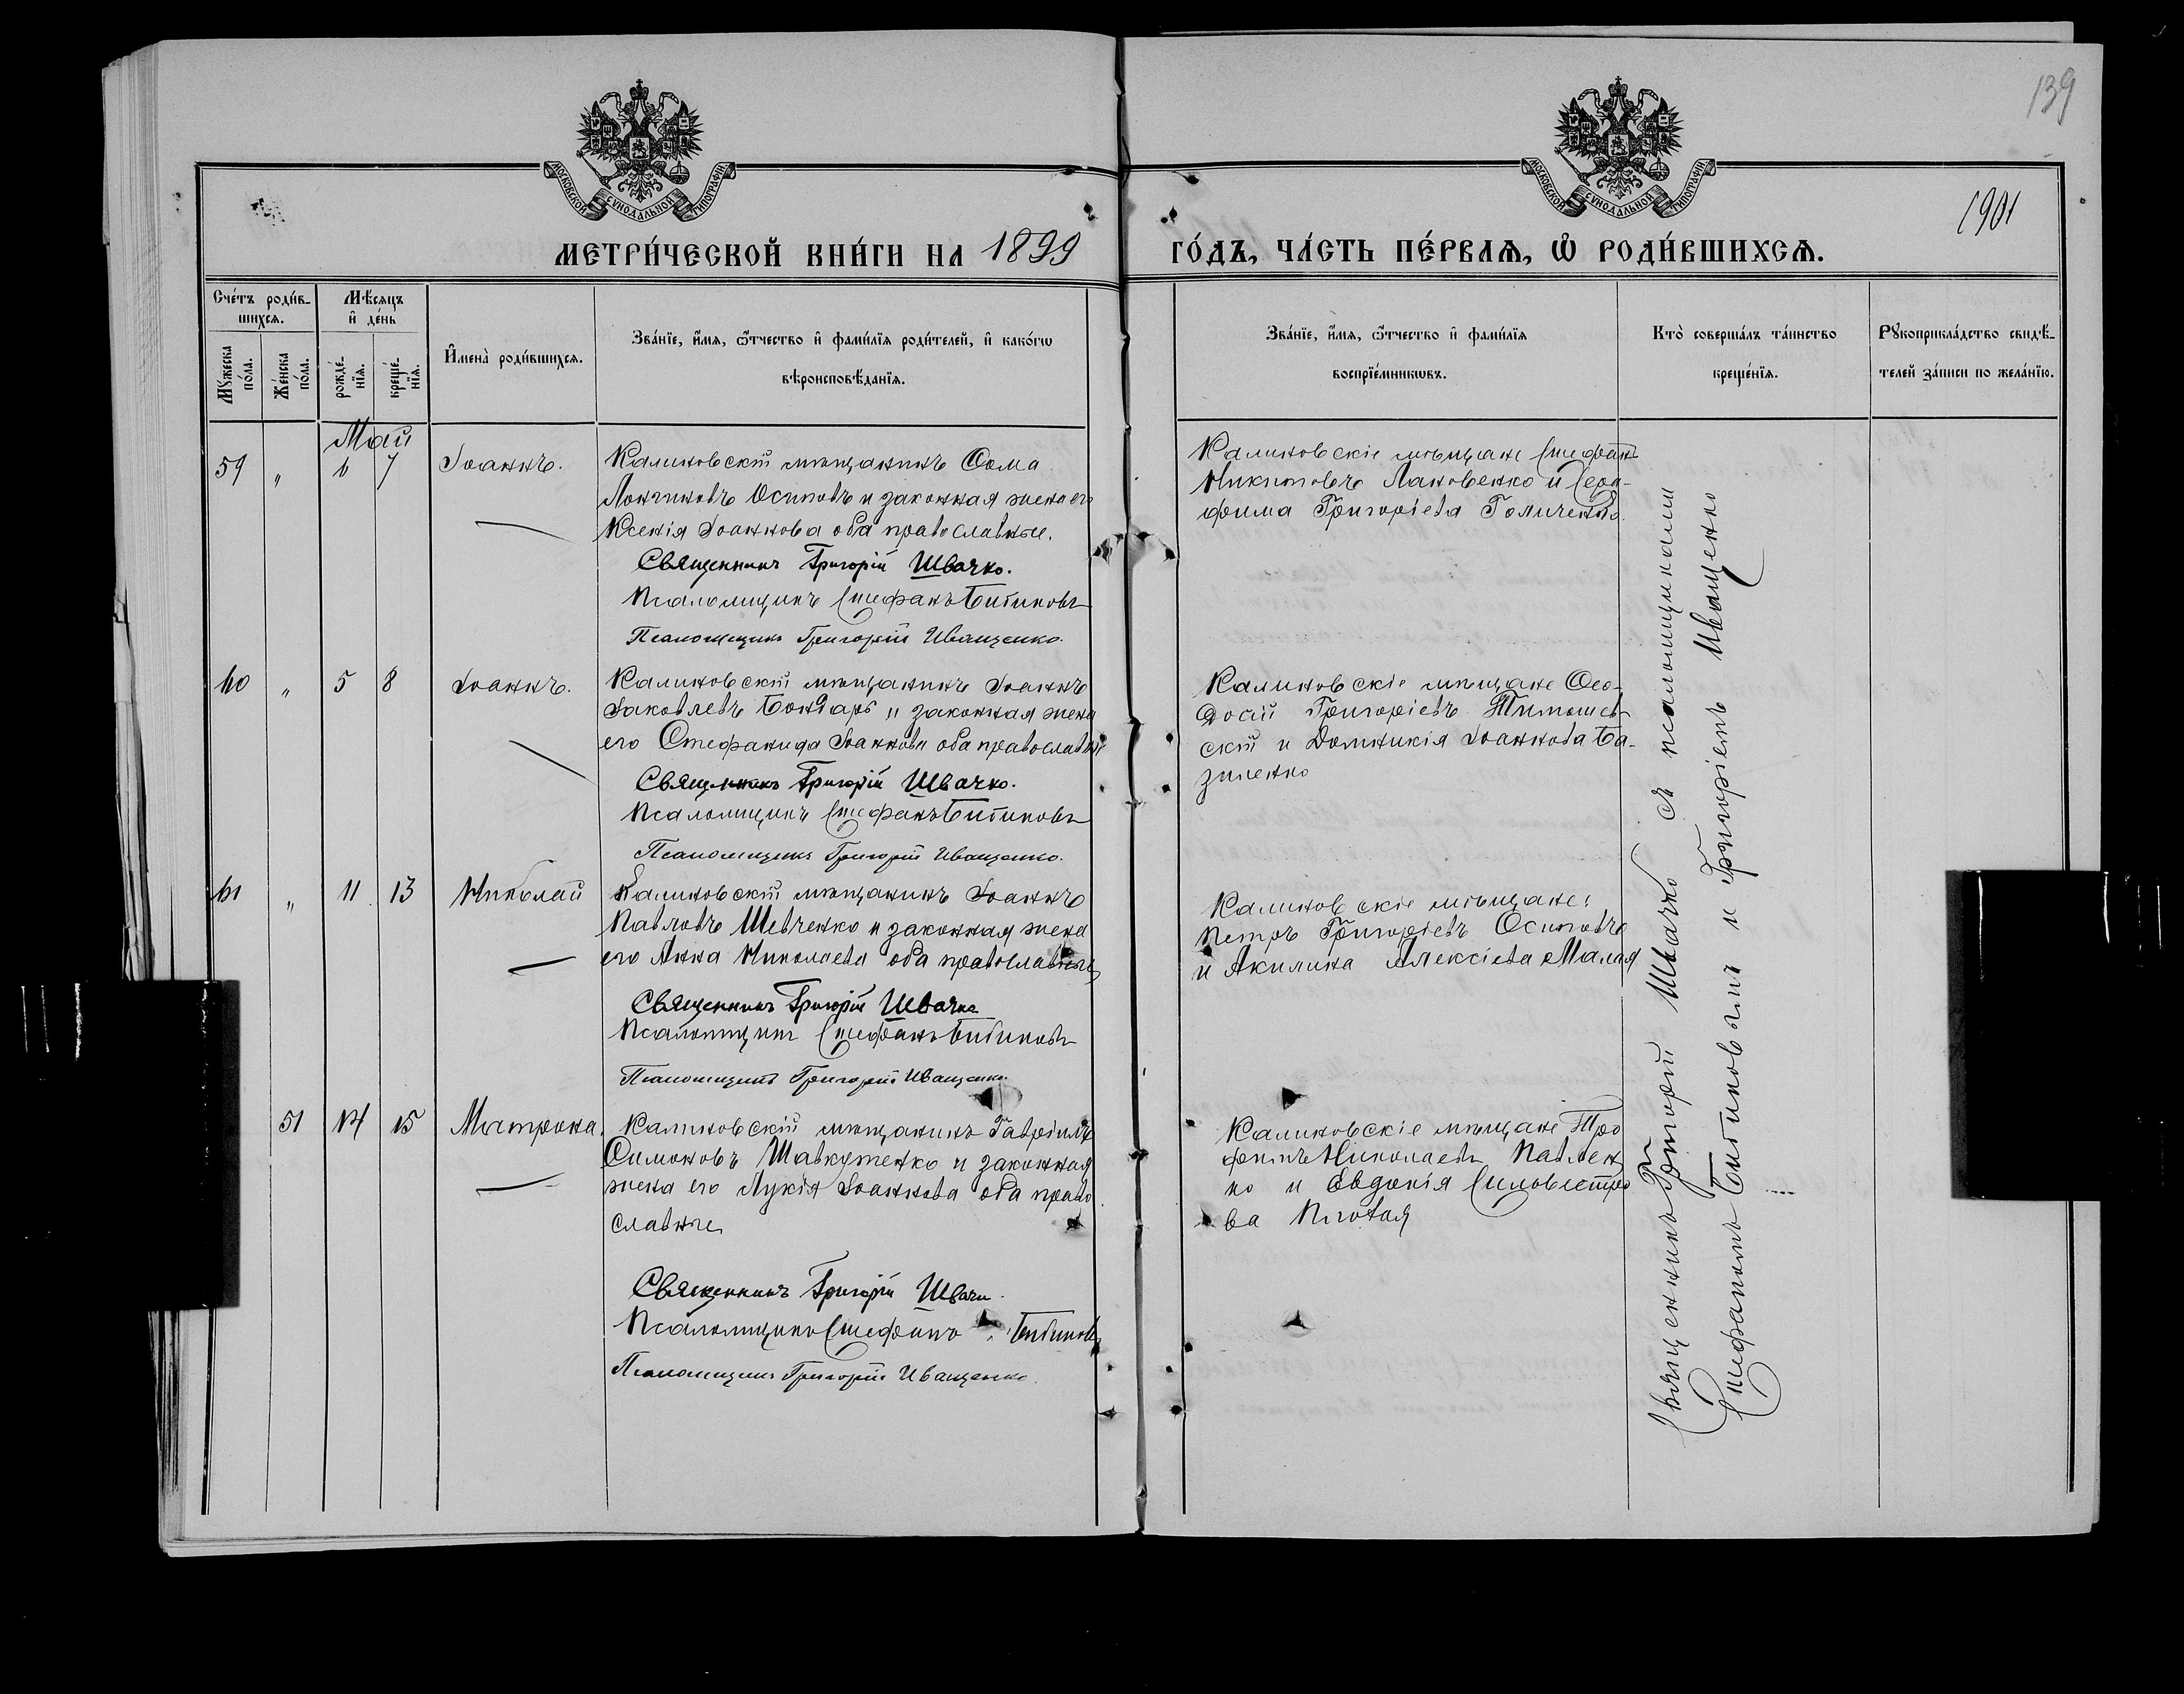 139
МОСКОВСКОЙ СѴНОДАЛЬНОЙ ТИПОГРАФІИ
МОСКОВСКОЙ СѴНОДАЛЬНОЙ ТИПОГРАФІИ
1901
МЕТРИ́ЧЕСКОЙ КНИ́ГИ НА 1899
ГО́ДЪ, ЧА́СТЬ ПЕ́РВАѦ, Ѡ҆ РОДИ́ВШИХСѦ.
Сче́тъ роди́в-
шихсѧ.
Мꙋ́жеска по́ла.
Же́нска по́ла.
Мѣ́сѧцъ
и҆ де́нь
рожде́-нїѧ.
креще́-нїѧ.
И҆мена̀ роди́вшихсѧ.
Зва́нїе, и҆́мѧ, ѻ҆́тчество и҆ фами́лїѧ роди́телей, и҆ како́гѡ
вѣроисповѣ́данїѧ.
Зва́нїе, и҆́мѧ, ѻ҆́тчество и҆ фами́лїѧ
воспрїе́мникѡвъ.
Кто̀ соверша́лъ та́инство
креще́нїѧ.
Рꙋкоприкла́дство свидѣ́-
телей за́писи по жела́нїю.
Май
59 " 6 7 Іоаннъ.
Калиновскій мѣщанинъ Ѳома
Лонгиновъ Осиповъ и законная жена его
Ксенія Іоаннова оба православные.
Священникъ Григорій Швачко.
Псаломщикъ Стефанъ Битиковъ
Псаломщикъ Григорій Иващенко.
Калиновскіе мѣщане Стефанъ
Никитовъ Лановенко и Сера-
фима Григоріева Голиченко.
60 " 5 8 Іоаннъ.
Калиновскій мѣщанинъ Іоаннъ
Іаковлевъ Бондарь и законная жена
его Стефанида Іоаннова оба православные
Священникъ Григорій Швачко.
Псаломщикъ Стефанъ Битиковъ
Псаломщикъ Григорій Иващенко.
Калиновскіе мѣщане Ѳео-
досій Григоріевъ Тимошев-
скій и Домникія Іоаннова Ба-
зиленко
61 " 11 13 Николай
Калиновскій мѣщанинъ Іоаннъ
Павловъ Шевченко и законная жена
его Анна Николаева оба православные
Священникъ Григорій Швачко
Псаломщикъ Стефанъ Битиковъ
Псаломщикъ Григорій Иващенко.
Калиновскіе мѣщане:
Петръ Григоріевъ Осиповъ
и Акилина Алексіева Малая
51 14 15 Матрона.
Калиновскій мѣщанинъ Гавріилъ
Симоновъ Шавкутенко и законная
жена его Лукія Іоаннова оба право
славные
Священникъ Григорій Швачко.
Псаломщикъ Стефанъ Битиковъ
Псаломщикъ Григорій Иващенко.
Калиновскіе мѣщане Тро
фимъ Николаевъ Павлен
ко и Евдокія Силовестро
ва
Священникъ Григорій Швачко съ псаломщиками
Стефаномъ Битиковымъ и Григоріемъ Иващенко